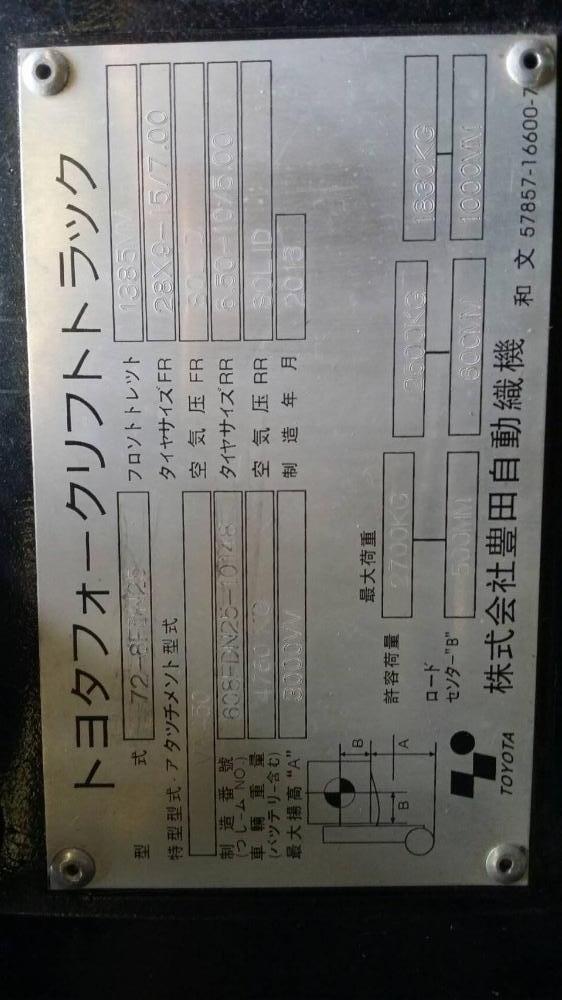 トヨタフォークリフトトラック
型式 72-8FDN25
フロントトレット 1385MM
特型型式・アタッチメント型式
タイヤサイズFR 28X9-15/7.00
空気圧FR SOLID
製造番号
(フレームNO.)
タイヤサイズRR 6.50-10/5.00
車輛重量
(バッテリー含む)
空気圧RR SOLID
最大揚高"A" 3000MM
製造年月 2013
最大荷重
許容荷量 2700KG
ロード
センター"B" 500MM 600MM 1000MM
A
B
B
TOYOTA
株式会社豊田自動織機
和文 57857-16600-7